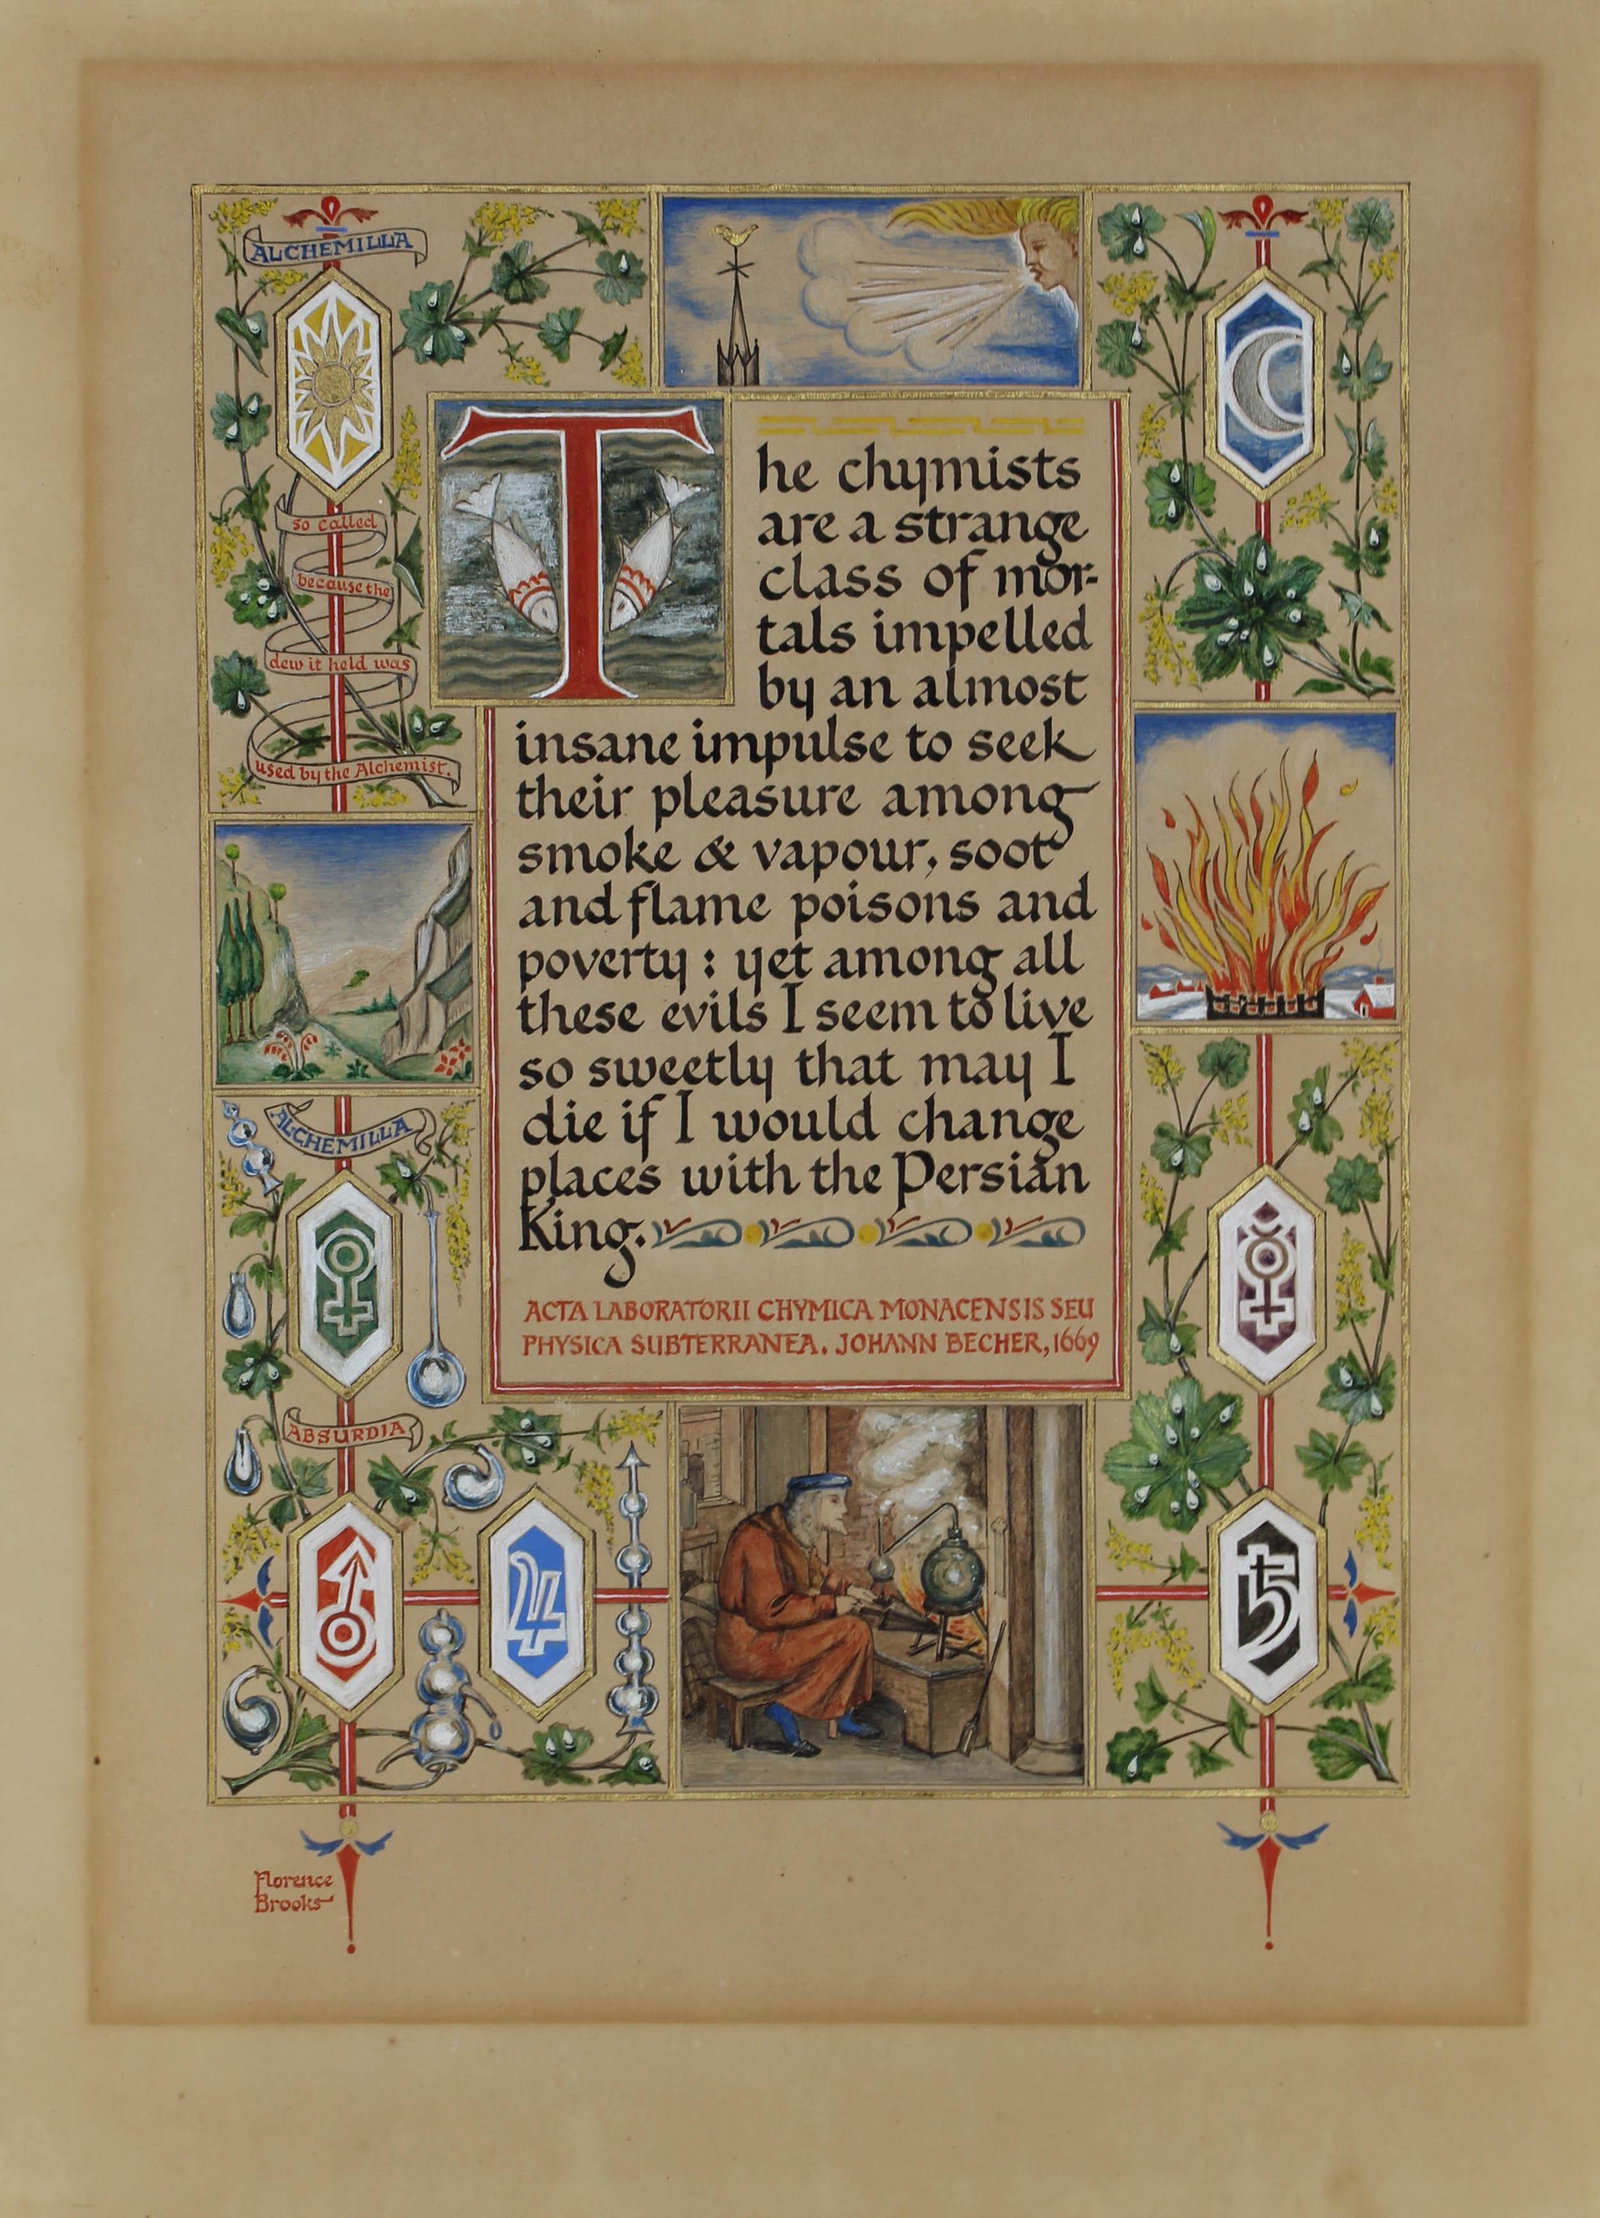 ALCHEMILLA
so called
because the
dew it held was
used by the Alchemist.
The chymists
are a strange
class of mor-
tals impelled
by an almost
insane impulse to seek
their pleasure among
smoke & vapour, soot
and flame poisons and
poverty : yet among all
these evils I seem to live
so sweetly that may I
die if I would change
places with the Persian
King.
ACTA LABORATORII CHYMICA MONACENSIS SEU
PHYSICA SUBTERRANEA. JOHANN BECHER, 1669
ALCHEMILLA
ABSURDIA
Florence
Brooks